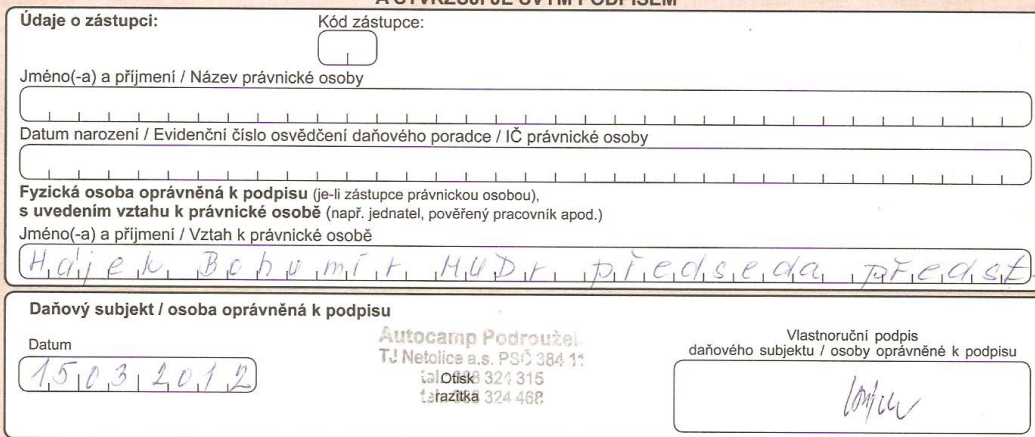 A UTVRZUJI JE SVÝM PODPISEM
Údaje o zástupci: Kód zástupce:
Jméno(-a) a příjmení / Název právnické osoby
Datum narození / Evidenční číslo osvědčení daňového poradce / IČ právnické osoby
Fyzická osoba oprávněná k podpisu (je-li zástupce právnickou osobou),
s uvedením vztahu k právnické osobě (např. jednatel, pověřený pracovník apod.)
Jméno(-a) a příjmení / Vztah k právnické osobě
Hájek Bohumír MUDr předseda předst
Daňový subjekt / osoba oprávněná k podpisu
Datum
15032012
Autocamp Podroužek
TJ Netolice a.s. PSČ 384 11
Otisk 324 315
razítka 324 468
Vlastnoruční podpis
daňového subjektu / osoby oprávněné k podpisu